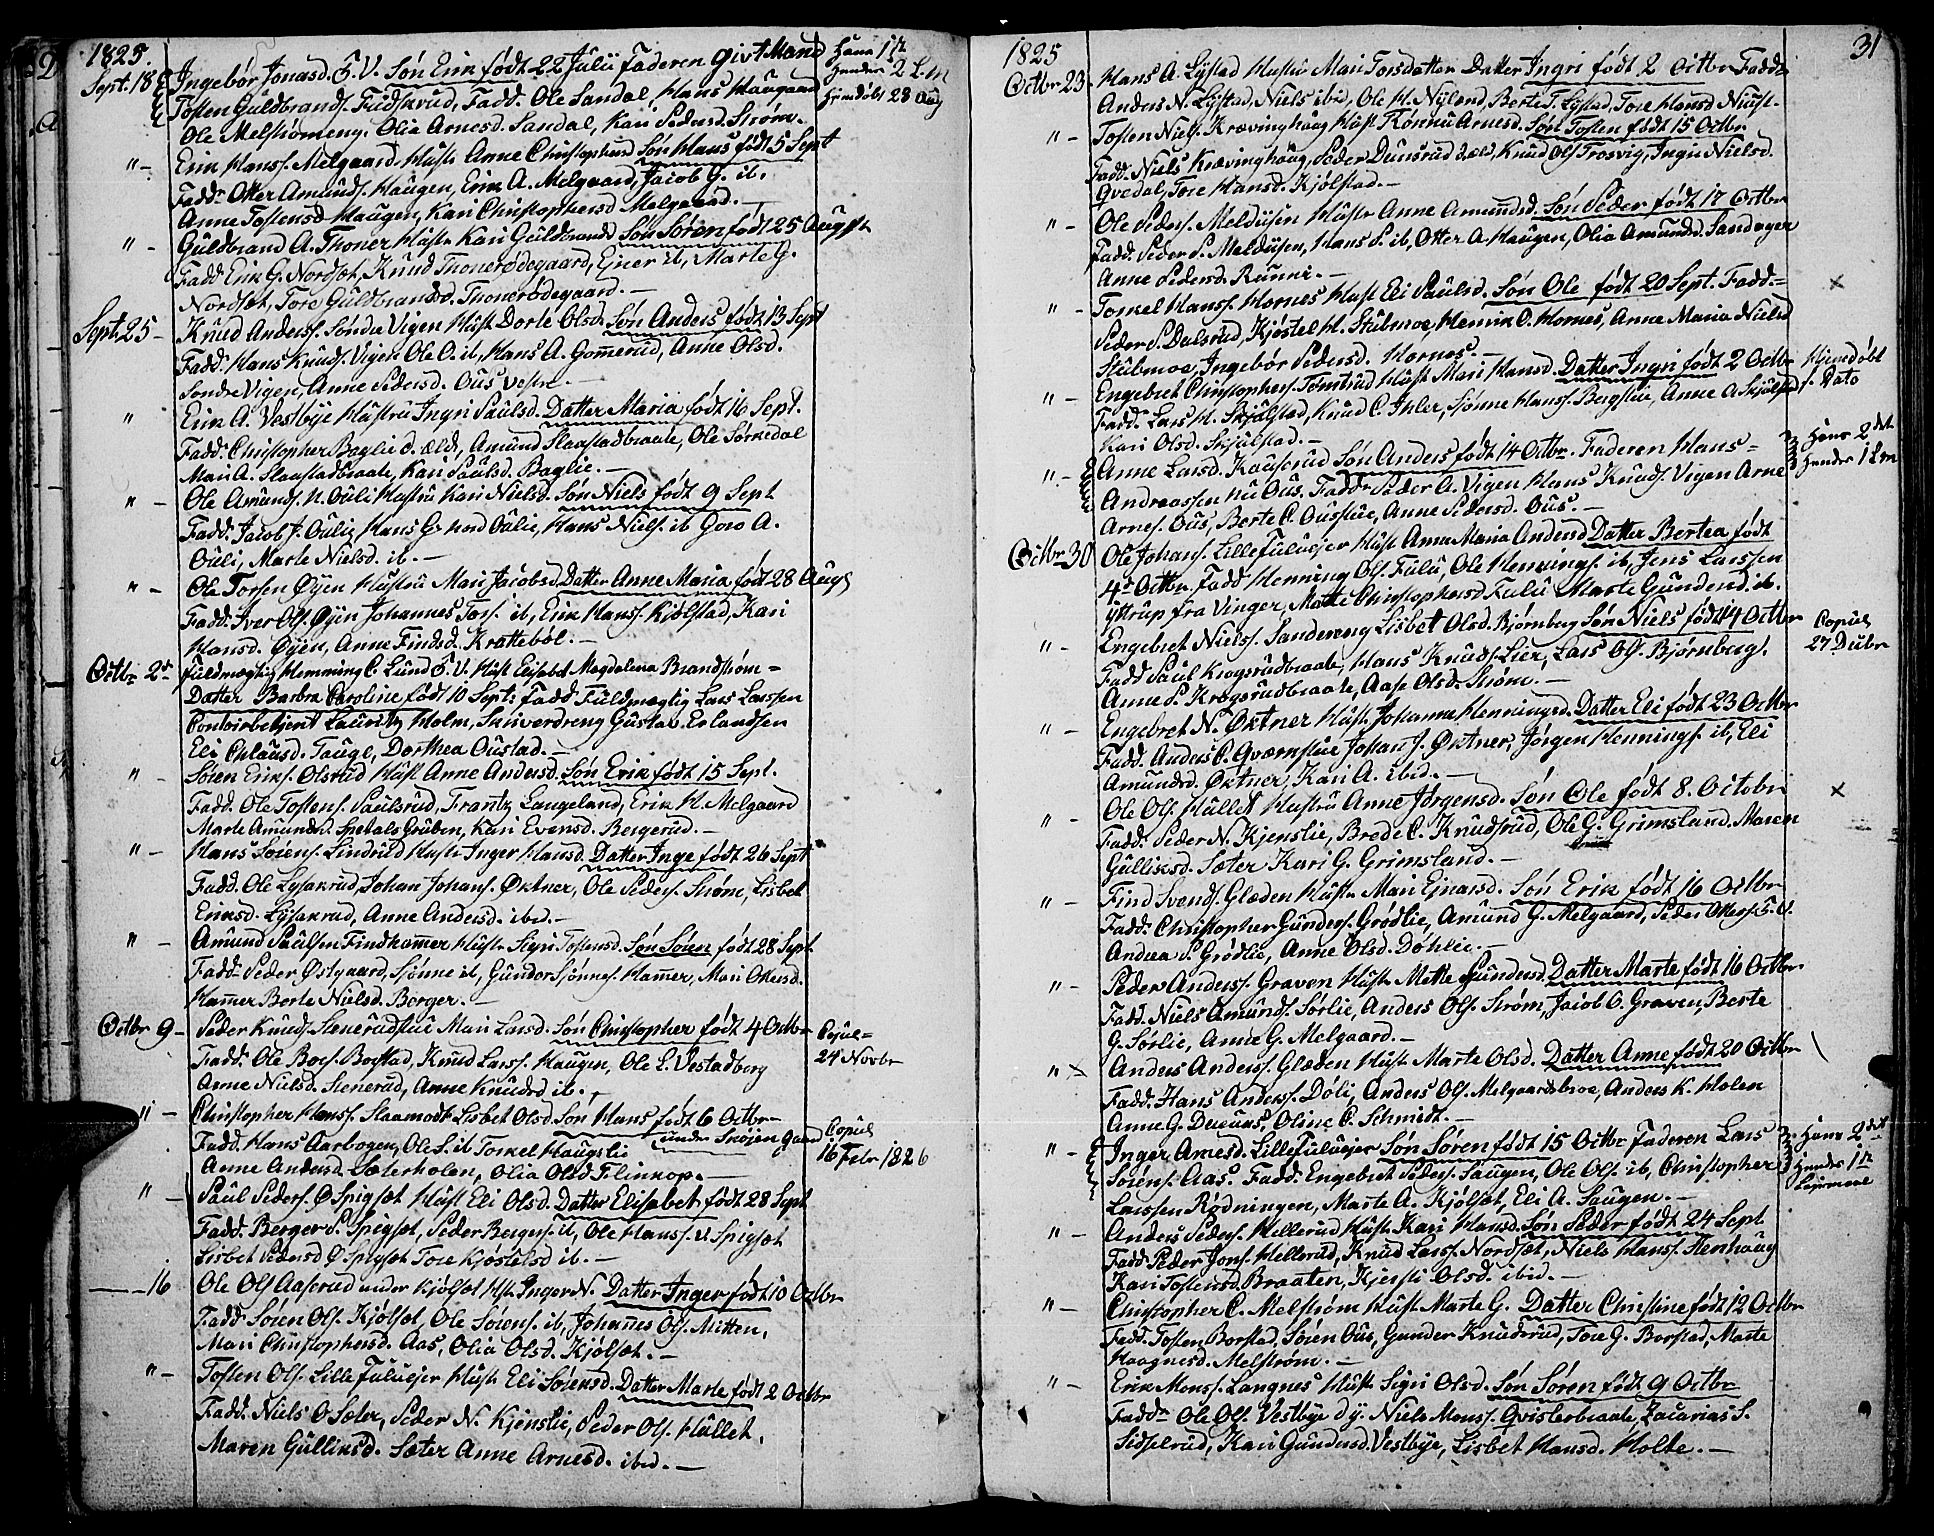 1825.
Sept. 18 Ingebør Jonasd. F. V. Søn Erik født 22 Julii Faderen givt Mand Hans 1te
Tosten Guldbrands. Fridskrud, Fadd. Ole Sandal, Hans Haugaard Hendes 2 L.m
Ole Melstrømeng. Olia Arnesd. Sandal, Kari Pedersd. Strøm. Hiemdøbt 28 Aug
" - Erik Hans. Melgaard Hustr Anne Christophersd Søn Hans født 5 Sept
Fadd. Otter Amunds. Haugen, Erik A. Melgaard, Jacob G. ib.
Anne Tostensd Haugen, Kari Christophersd Melgaard. -
" - Guldbrand A. Thoner Hustr Kari Guldbrandsd Søn Søren født 25 August
Fadd Erik G. Nordsæt, Knud Thonerødegaard, Ejner ib, Marte G.
Nordsæt, Tore Guldbrandsd. Thonerødegaard. -
Sept. 25 - Knud Anders. Søndre Vigen Hustr Dorte Olsd. Søn Anders født 13 Sept
Fadd. Hans Knuds. Vigen Ole O. ib, Hans A. Gommerud, Anne Olsd.
Søndre Vigen, Anne Pedersd. Ous vestre. -
" Erik A. Vestbye Hustru Ingri Paulsd. Datter Maria født 16 Sept.
Fadd. Christopher Baglie d. æld, Amund Slaastadbraate, Ole Sørkedal
Mari A. Slaastadbraate, Kari Paulsd. Baglie. -
" - Ole Amunds. N. Ouli Hustru Kari Nielsd. Søn Niels født 9 Sept
Fadd. Jacob J. Ouli, Hans G. nord Oulie, Hans Niels. ib Goro A.
Ouli, Marte Nielsd. ib. -
" - Ole Torsen Øyen Hustru Mari Jacobsd. Datter Anne Maria født 28 Augs
Fadd. Iver Ols. Øyen Johannes Tors. ib, Erik Hans. Kiølstad, Kari
Hansd. Øyen, Anne Findsd. Krattebøl. -
Octbr 2d Fuldmægtig Hemming C. Lund F. V. Hust Elisabet Magdalena Brandstrøm =
Datter Barbra Caroline født 10 Sept: Fadd Fuldmægtig Lars Larssen
Contoirbetjent Lauritz Holm, Skriverdreng Gustav Erlandsen
Eli Chlausd. Tauge, Dorthea Oustad. -
" Søren Eriks. Olsrud Hust Anne Andersd. Søn Erik født 15 Sept.
Fadd. Ole Tostens. Paulsrud, Frantz Langeland, Erik H. Melgaard
Marte Amundsd. Spetals Gruben, Kari Evensd. Bergerud. -
" - Hans Sørens. Lindrud Hustr Inger Hansd. Datter Inge født 26 Sept
Fadd. Ole Lysakrud, Johan Johans. Øktner, Ole Peders. Strøm, Lisbet
Eriksd. Lysakrud, Anne Andersd. ibid. -
" - Amund Paulsen Findhammer Hustr Sigri Tostensd. Søn Søren født 28 Sept
Fadd. Peder Østgaard, Sjønne ib, Gunder Sjønnes. Hammer, Mari Ottersd.
Hammer Berte Nielsd. Berger. -
Octbr 9 - Peder Knuds. Stenerudstue Mari Larsd. Søn Christopher født 4 Octbr Copul=
Fadd. Ole Boes. Borstad, Knud Larss. Haugen, Ole L. Vestadberg 24 Novbr
Anne Nielsd. Stenerud, Anne Knudsd ib. -
" - Christopher Hans. Slaamodt Lisbet Olsd. Søn Hans født 6 Octbr - under Skøjen Gaard Copul
Fadd. Hans Aarbogen, Ole L. ib Torkel Haugslie 16 Febr 1826
Anne Andersd. Sæterholen, Olia Olsd Flinkop. -
" Paul Peders. Ø Spigset Hust Eli Olsd. Datter Elisabet født 28 Sept
Fadd. Berger P. Spigset, Peder Bergers. ib, Ole Hans. V Spigset
Lisbet Pedersd Ø Spigset Tore Kjøstelsd ib. -
16 Ole Ols Aaserud under Kjølset Hst Inger N. Datter Inger født 10 Octbr
Fadd Søren Ols. Kjølset, Ole Sørens. ib, Johannes Ols. Mitten,
Mari Christophersd. Aas, Olia Olsd. Kjølset. -
" - Tosten Ols. Lille Fuluejer Hustr Eli Sørensd. Datter Marte født 2 Octbr
Fadd. Niels O Sæter, Peder N. Kjenslie, Peder Ols. Hullet,
Maren Gulliksd. Sæter Anne Arnesd. ibid. -
1825 31
Octbr 23 - Hans A. Lystad Hustru Mari Torsdatter Datter Ingri født 2 Octbr Fadd.
Anders N. Lystad, Niels ibid, Ole H. Nylend, Berte T. Lystad, Tore Hansd Niust.
" - Tosten Niels. Krævinghaug Hust Rønnu Arnesd. Søn Tosten født 15 Octbr
Fadd. Niels Krævinghaug, Peder Dunsrud d. æld, Knud Ols Trosvig, Ingri Nielsd.
Qvedal, Tore Hansd. Kjølstad. -
" - Ole Peders. Meldiisen Hustr Anne Amundsd. Søn Peder født 17 Octbr
Fadd. Peder P. Meldiisen, Hans P. ib, Otter A. Haugen, Olia Amundsd. Sandager
Anne Pedersd. Runni. -
" - Torkel Hans. Hornes Hust Eli Paulsd. Søn Ole født 20 Sept. Fadd. = ×
Peder P. Dalsrud, Kjøstel H. Stubmoe, Henrik O. Hornes, Anne Maria Nielsd
Stubmoe, Ingebør Pedersd. Hornes. -
" - Engebret Christophers. Tomterud Hust Mari Hansd. Datter Ingri født 2 Octbr Hjemdøbt
Fadd. Lars H. Skjulstad, Knud C. Ihler, Sjønne Hans. Bergstue, Anne A. Skjulstad s. Dato
Kari Olsd. Skjulstad. -
" - Anne Larsd. Kauserud Søn Anders født 14 Octbr. Faderen Hans = Hans 2det
Andreassen nu Ous. Fadd. Peder A. Vigen Hans Knuds. Vigen Arne Hendes 1 L.m
Arnes. Ous, Berte C. Ousstue, Anne Pedersd. Ous. -
Octbr 30 Ole Johans. Lille Fuluejer Hust Anne Maria Andersd Datter Bertea født
4de Octbr. Fadd Henning Ols. Fulu, Ole Hennings. ib, Jens Larssen
ystrup fra Vinger, Matte Christophersd Fulu Marte Gundersd. ib.
" - Engebret Niels. Sandereng Lisbet Olsd. Bjørnberg Søn Niels født 14 Octbr Copul
Fadd Paul Krogsrudbraate, Hans Knuds. Lier, Lars Ols. Bjørnberg, 27 Dcbr
Anne P. Krogsrudbraate, Aase Olsd. Strøm. -
" - Engebret N. Øktner Hustr Johanne Henningsd. Datter Eli født 23 Octbr
Fadd. Anders C. Qværnstue Johan J. Øktner, Jørgen Hennings. ib, Eli
Amundsd. Øktner, Kari A. ibid. -
" - Ole Ols. Hullet Hustru Anne Jørgensd. Søn Ole født 8. Octobr ×
Fadd. Peder N. Kjenslie, Brede C. Knudsrud, Ole G. Grimsland Maren
Gulliksd. Sæter Kari G. Grimsland. -
" - Find Svends. Glæden Hustr Mari Ejnarsd. Søn Erik født 16 Octbr
Fadd. Christopher Gunders. Grødlie, Amund G. Melgaard, Peder Otters. F. V.
Andrea P. Grødlie, Anne Olsd. Døhlie. -
" - Peder Anders. Graven Hustr Mette Gundersd. Datter Marte født 16 Octbr.
Fadd. Niels Amunds. Sørlie, Anders Ols. Strøm, Jacob O. Graven, Berte
G. Sørlie, Anne G. Melgaard. -
" × Anders Anders. Glæden Hustr Marte Olsd. Datter Anne født 20 Octbr
Fadd. Hans Anders. Døli, Anders Ols. Melgaardsbroe, Anders K. Holen
Anne G. , Oline C. Schmidt. -
" - Inger Arnesd. Lille Fuluejer Søn Søren født 15 Octbr Faderen Lars Hans 2det
Sørens. Aas. Fadd: Engebret Peders. Saugen, Ole Ols. ib, Christopher Hendes 1te
Larssen Rødningen, Marte A. Kjølset, Eli A. Saugen. - Leiermaal
" - Anders Peders. Hellerud Hustr Kari Hansd. Søn Peder født 24 Sept
Fadd Peder Jons. Hellerud, Knud Larss. Nordsæt, Niels Hans. Stenhaug
Kari Tostensd. Braaten, Kjersti Olsd. ibid. -
" - Christopher C. Melstrøm Hust Marte G. Datter Christine født 12 Octbr
Fadd. Tosten Borstad, Søren Ous, Gunder Knudsrud, Tore G. Borstad, Marte
Haagnesd. Melstrøm. -
" - Erik Mons. Langnes Hustr Sigri Olsd. Søn Søren født 9 Octbr
Fadd. Ole Ols. Vestbye d y. Niels Mons. Gvisterbraate, Zacarias S.
Sidselrud, Kari Gundersd. Vestbye, Lisbet Hansd. Holte. -